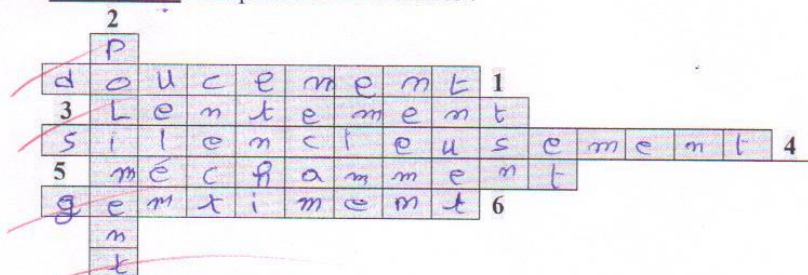 2
P
doucement 1
3 Lentement
silencieusement 4
5 méchamment
gentiment 6
n
t